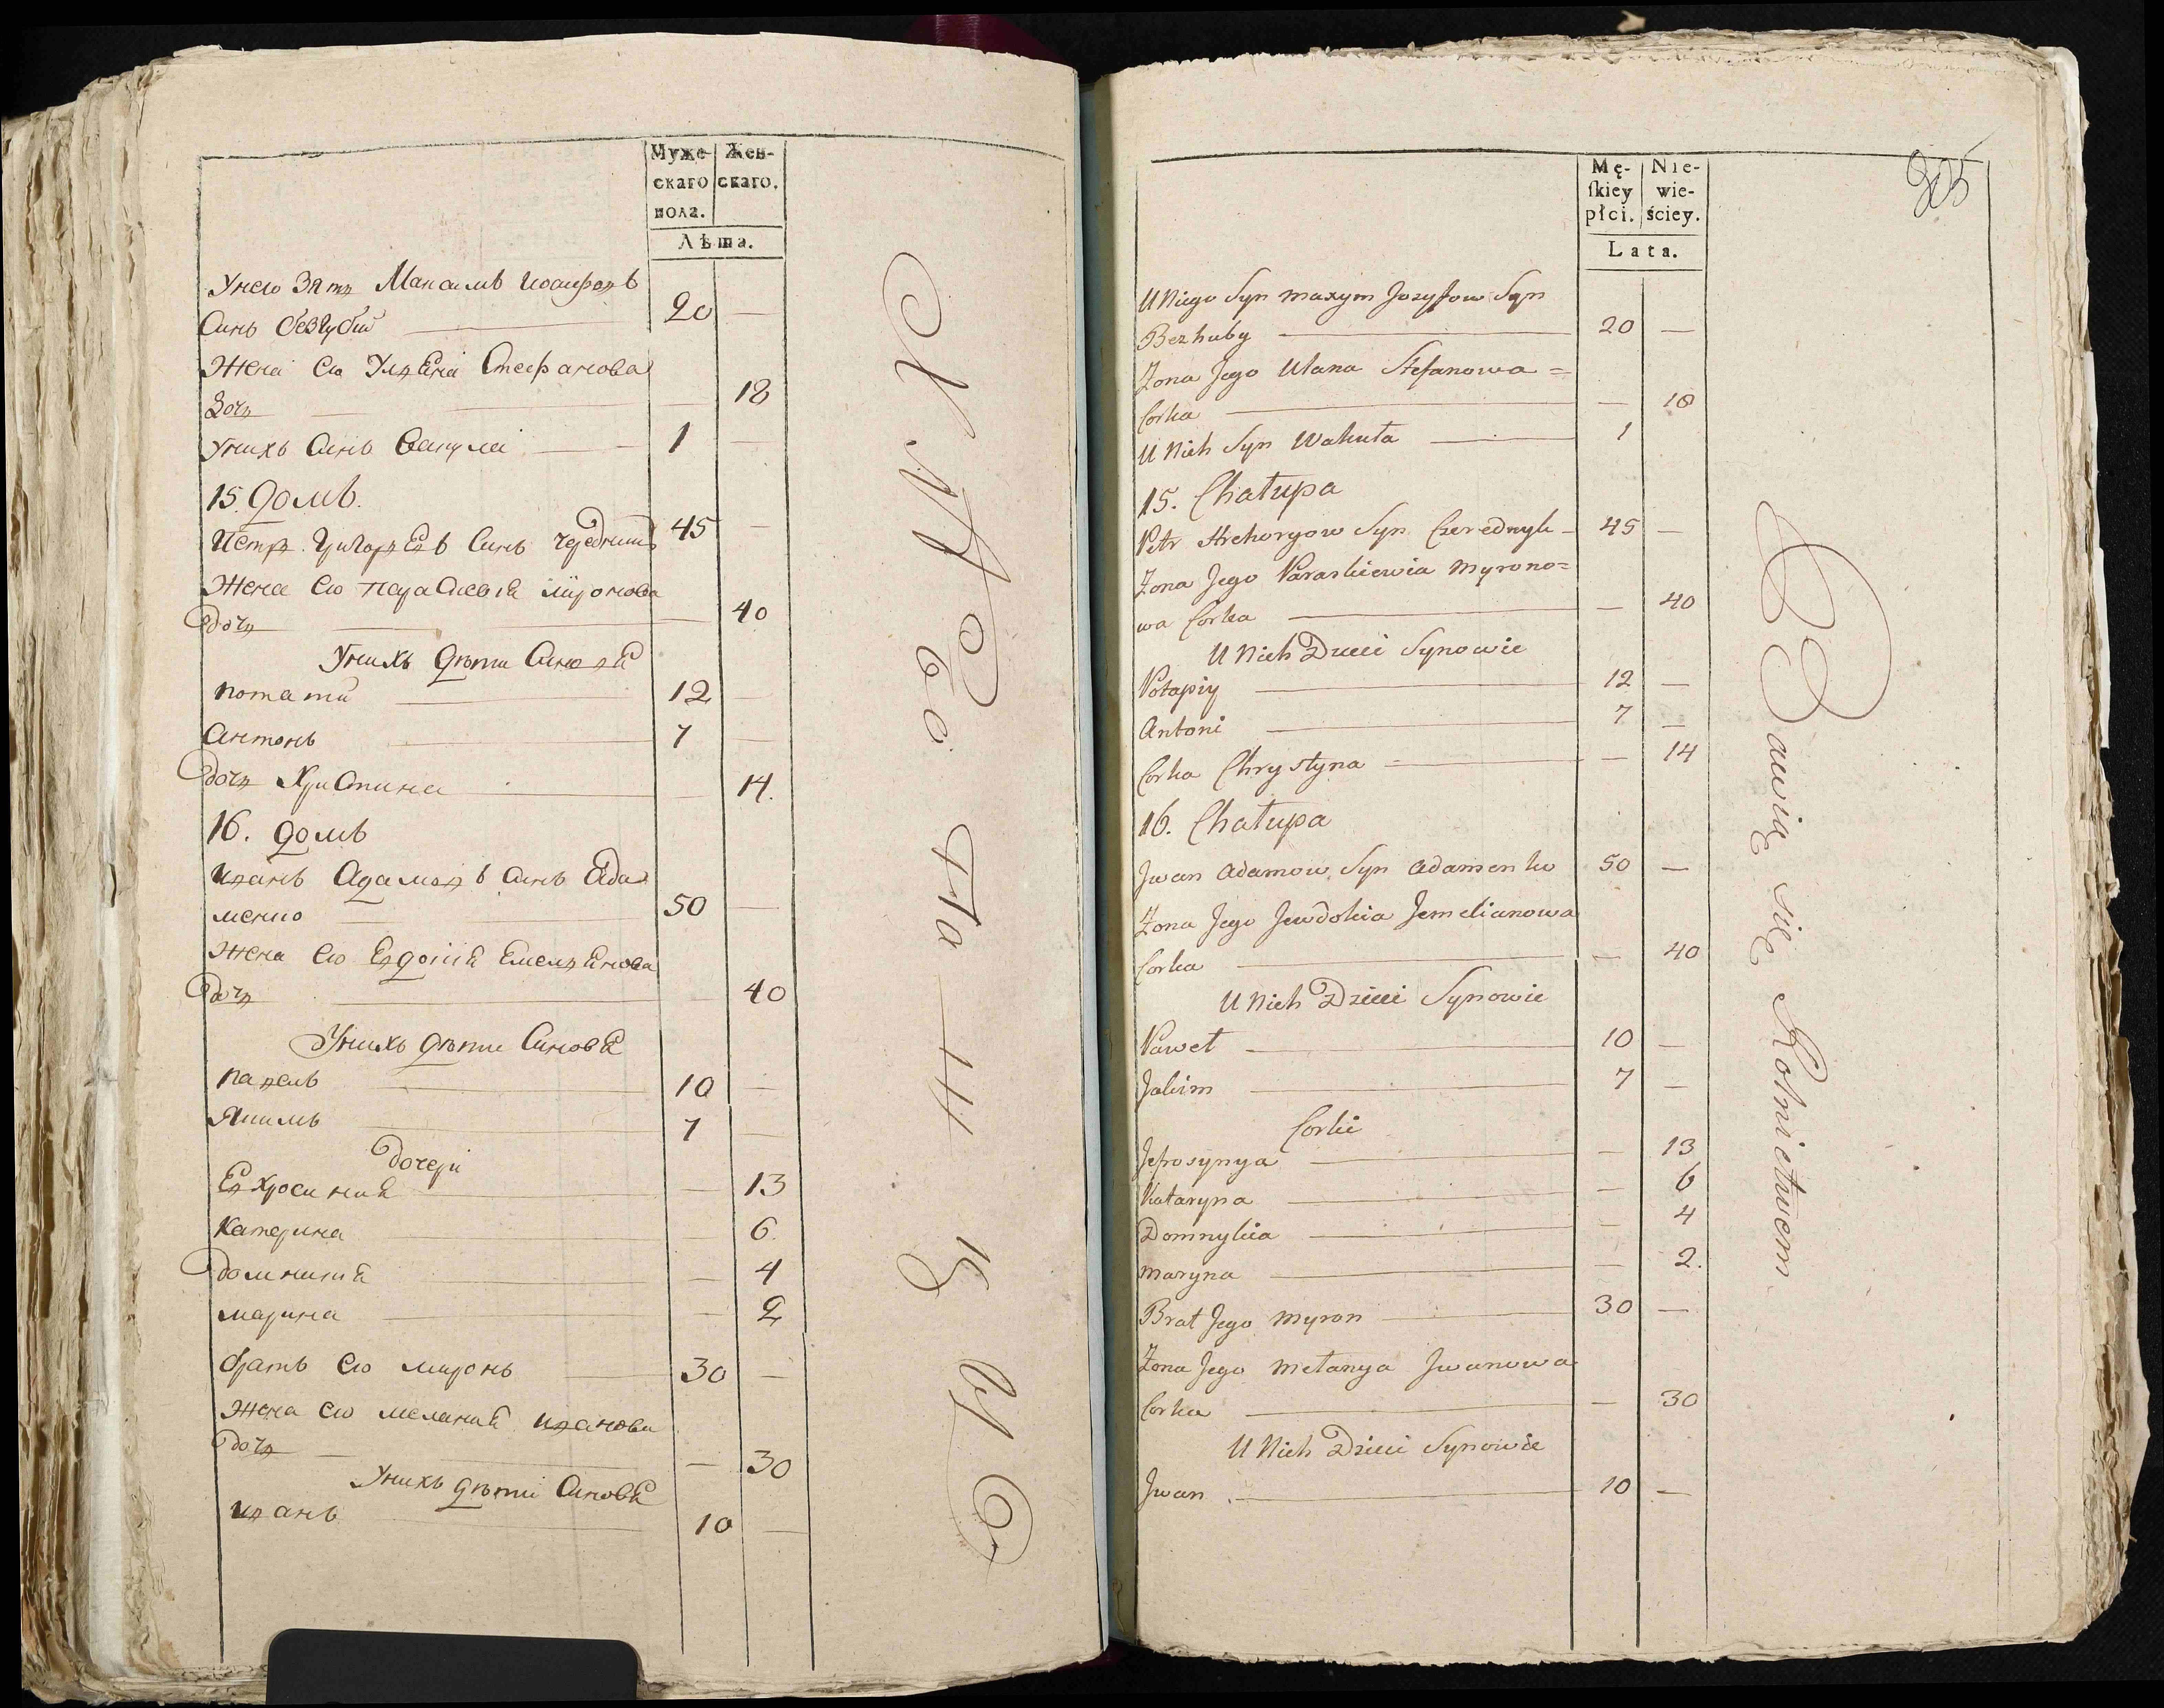 Муже-
скаго
пола.
Жен-
скаго.
Лѣта.
Унего Зятъ Максимъ Иосифовъ
Синъ безгубий 20 —
Жена его Уляна Стефанова
Дочь — 18
Унихъ Синъ Вакула 1 —
15. Домъ.
Петръ Григорьевъ Синъ чередникъ 45 —
Жена его параскевія миронова
дочь — 40
Унихъ дѣти Синовя
потапій 12 —
Антонъ 7 —
дочь Христина — 14.
16. домъ
Иванъ Адамовъ Синъ Ада-
менко 50 —
Жена его Евдокія Емельянова
дочь — 40
Унихъ дѣти Синовя
павелъ 10 —
Якимъ 7 —
дочери
Евхросиния — 13
Катерина — 6.
домникия — 4
марина — 2
братъ его миронъ 30 —
Жена его мелания иванова
дочь — 30
Унихъ дѣти Синовя
иванъ 10 —
Mę-
skiey
płci.
Nie-
wie-
ściey.
Lata.
205
U Niego Syn maxym Jozyfow Syn
Bezhuby 20 —
Zona Jego Ulana Stefanowa =
Corka — 18
U Nich Syn Wakuła 1
15. Chałupa
Petr Hrehoryow Syn Czerednyk — 45 —
Zona Jego Paraskiewia myrono=
wa Corka — 40
U Nich Dzieci Synowie
Potapiy 12 —
Antoni 7 —
Corka Chrystyna — 14
16. Chałupa
Jwan Adamow Syn Adamenko 50 —
Zona Jego Jewdokia Jemelianowa
Corka — 40
U Nich Dzieci Synowie
Paweł 10 —
Jakim 7 —
Corki
Jefrosynya — 13
Kataryna — 6
Domnykia — 4
maryna — 2.
Brat Jego myron 30 —
Zona Jego mełanya Jwanowa
Corka — 30
U Nich Dzieci Synowie
Jwan 10 —
Bawią się Rolnictwem